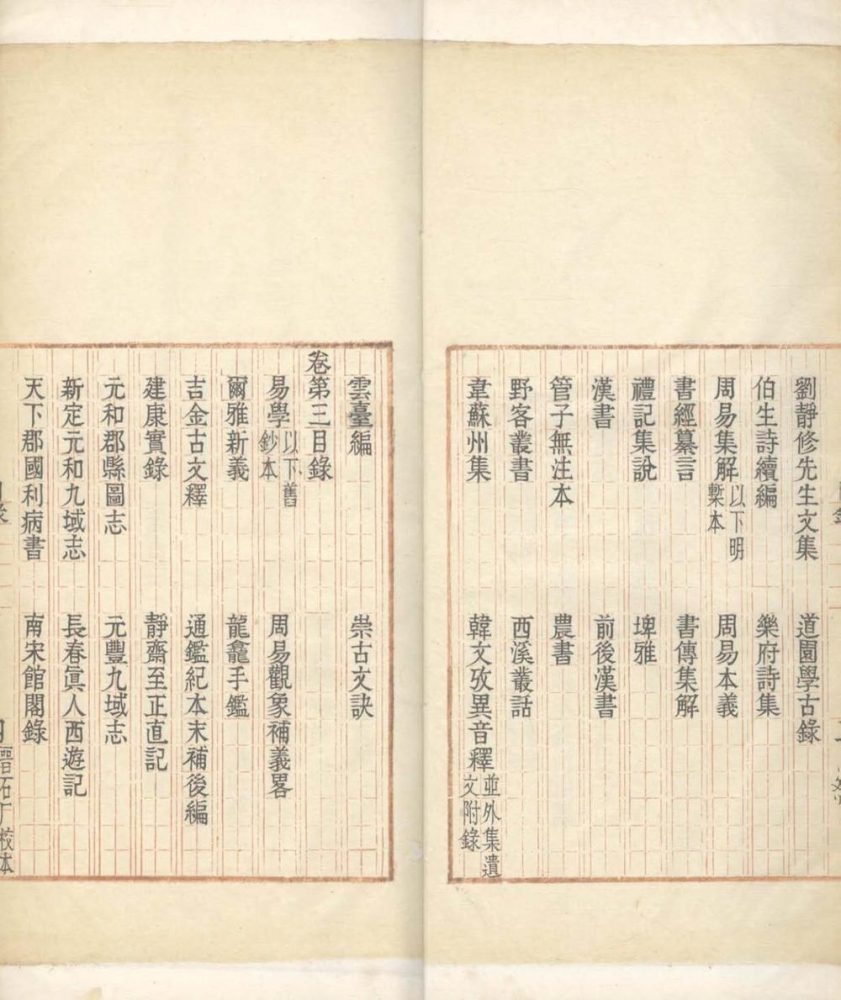 劉靜修先生文集 道園學古錄
伯生詩續編 樂府詩集
周易集解以下明槧本 周易本義
書經纂言 書傳集解
禮記集說 埤雅
漢書 前後漢書
管子無注本 農書
野客叢書 西溪叢話
韋蘇州集 韓文攷異音釋並外集遺文附錄
雲臺編 崇古文訣
卷第三目錄
易學以下舊鈔本 周易觀象補義畧
爾雅新義 龍龕手鑑
吉金古文釋 通鑑紀本末補後編
建康實錄 靜齋至正直記
元和郡縣圖志 元豐九域志
新定元和九域志 長春眞人西遊記
天下郡國利病書 南宋館閣錄